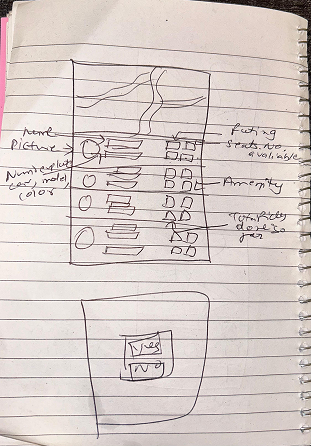 Name
Picture
Number plate
car, model,
color
Rating
Seats. No.
available
Amenity
Total Rides
done so
far
Yes
No